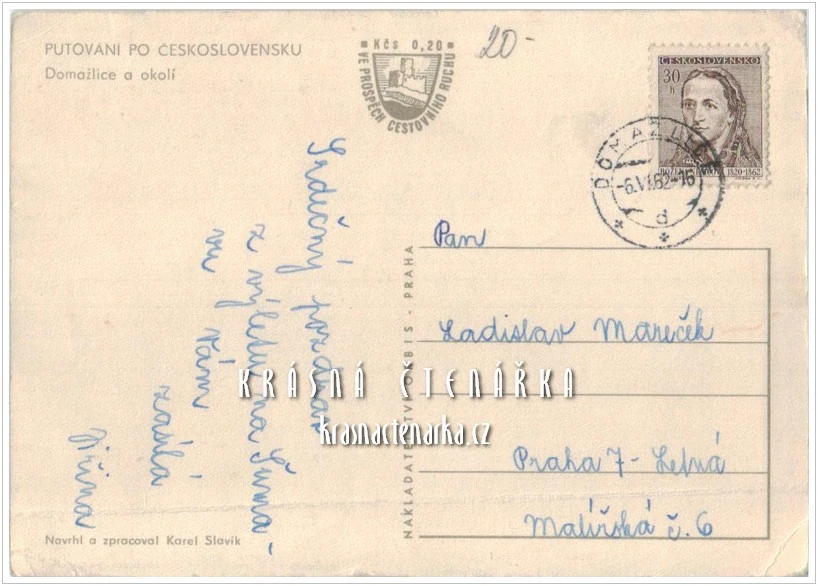 PUTOVÁNÍ PO ČESKOSLOVENSKU
Domažlice a okolí
Kčs 0,20
VE PROSPĚCH CESTOVNÍHO RUCHU
20-
ČESKOSLOVENSKO
30 h
BOŽENA NĚMCOVÁ 1820-1862
DOMAŽLICE
-6.VI.62-16
d
Srdečný pozdrav
z výletu na Šuma-
vu Vám
zasílá
Jiřina
Navrhl a zpracoval Karel Slavík
NAKLADATELSTVÍ ORBIS - PRAHA
Pan
Ladislav Mareček
Praha 7-Letná
Malířská č. 6
KRÁSNÁ ČTENÁŘKA
krasnactenarka.cz